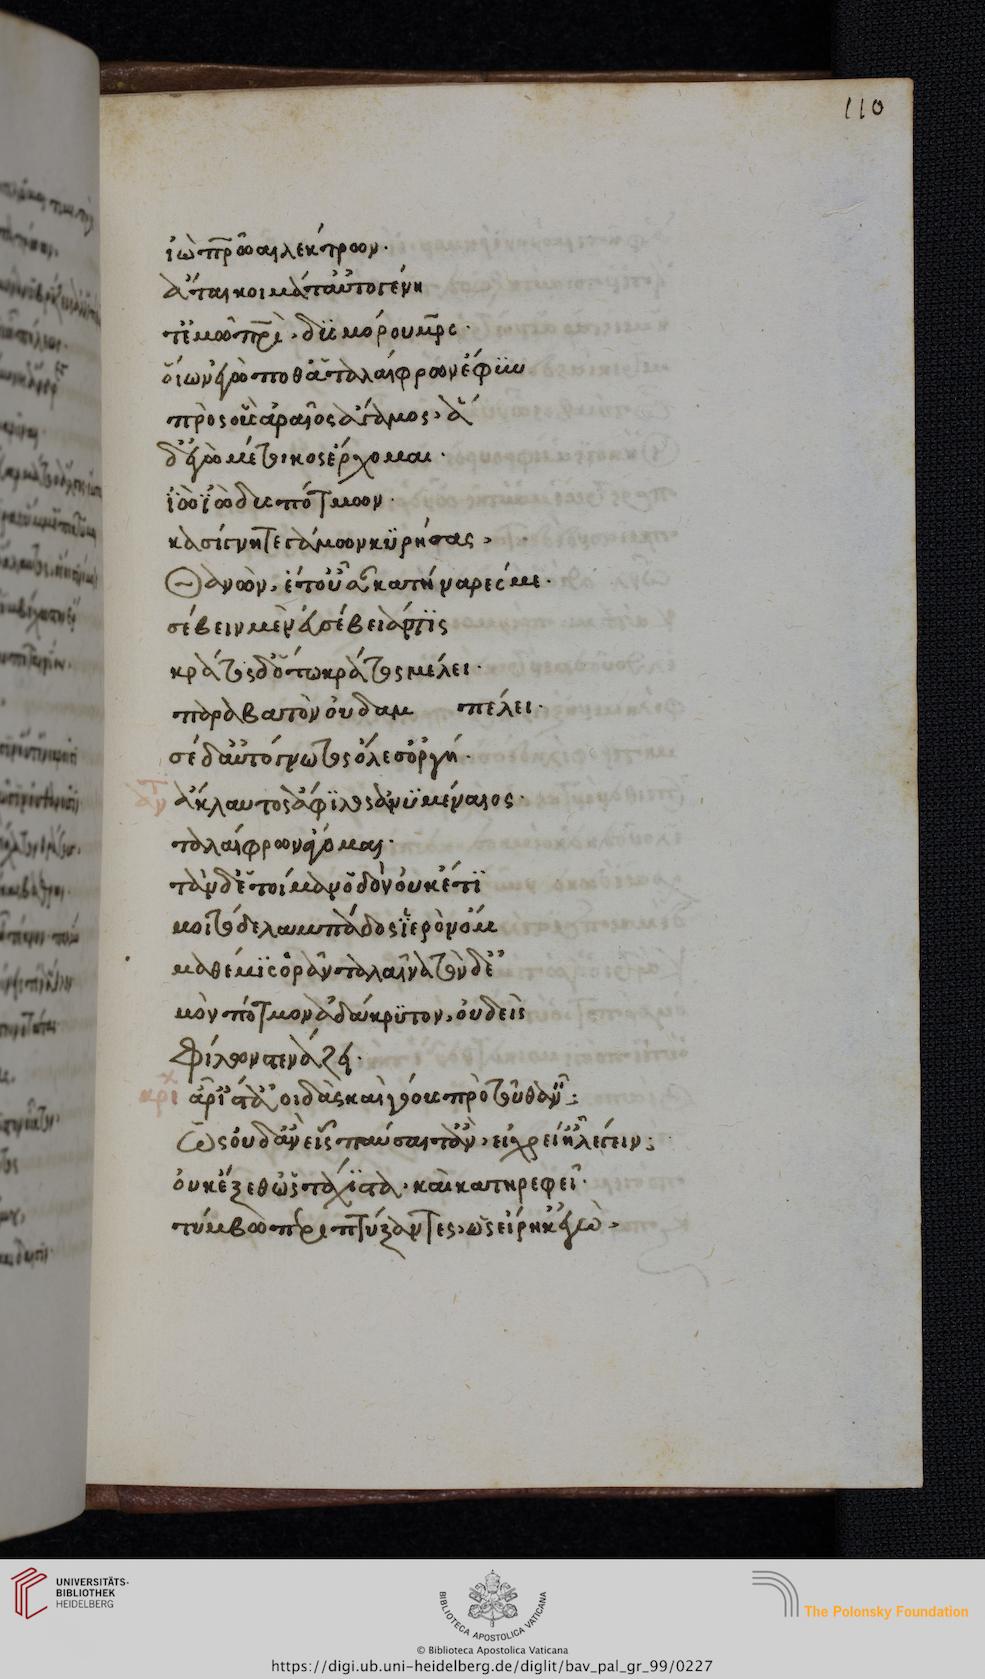 110
ἰὼ πρώαι λέκτρων·
ἆται κοιμάματ' αὐτογένη
τ' ἐμῶ πρὶ, δυσμόρου μρς·
οἵων ἐγώ ποθ' ἁ ταλαίφρων ἔφυν
πρὸς οὓς ἀραῖος ἄγαμος, ἅδ'
ἐγὼ μέτοικος ἔρχομαι·
ἰὼ ἰὼ δυσπότμων·
κασίγνητε γάμων κυρήσας,
θανὼν, ἔτ' οὖσαν κατήναρές με·
σέβειν μὲν εὐσέβειά τις
κράτος δ' ὅτω κράτος μέλει·
παραβατὸν οὐδαμῆ πέλει·
σὲ δ' αὐτόγνωτος ὄλεσ' ὀργή·
ἀν ἄκλαυτος ἄφιλος ἀνυμέναιος·
ταλαίφρων ἄγομαι·
τὰν δ' ἑτοίμαν ὁδὸν οὐκέτι
μοι τόδε λαμπάδος ἱερὸν ὄμ
μα θέμις ὁρᾶν ταλαίνα τὸν δ' ἐ
μὸν πότμον ἀδάκρυτον, οὐδεὶς
φίλων στενάζει·
κρ ἆρ' ἴστ' ἀοιδὰς καὶ γόους πρὸ τοῦ θανεῖν:
ὡς οὐδ' ἂν εἷς παύσαιτ' ἂν, εἰ χρείη λέγειν:
οὐκ ἄξεθ' ὡς τάχιστα, καὶ κατηρεφεῖ·
τύμβω περιπτύξαντες, ὡς εἴρηκ' ἐγὼ,
UNIVERSITÄTS-
BIBLIOTHEK
HEIDELBERG
BIBLIOTECA APOSTOLICA VATICANA
The Polonsky Foundation
© Biblioteca Apostolica Vaticana
https://digi.ub.uni-heidelberg.de/diglit/bav_pal_gr_99/0227